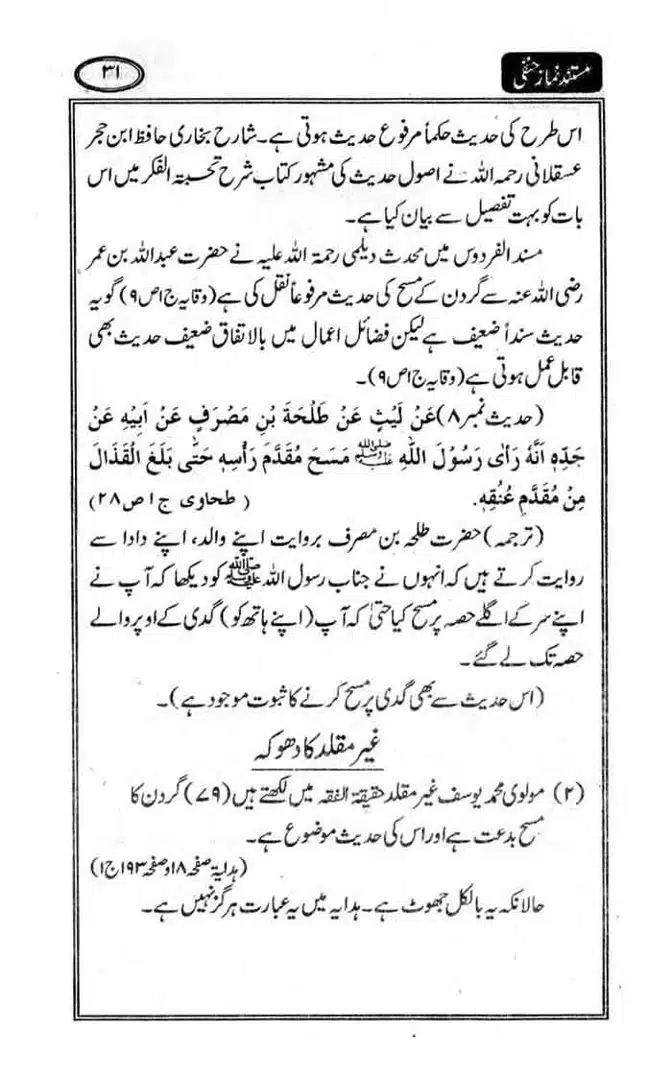 مستند نماز حنفی
۳۱
اس طرح کی حدیث حکماً مرفوع حدیث ہوتی ہے۔ شارح بخاری حافظ ابن حجر
عسقلانی رحمہ اللہ نے اصول حدیث کی مشہور کتاب شرح نخبتہ الفکر میں اس
بات کو بہت تفصیل سے بیان کیا ہے۔
مسند الفردوس میں محدث دیلمی رحمۃ اللہ علیہ نے حضرت عبداللہ بن عمر
رضی اللہ عنہ سے گردن کے مسح کی حدیث مرفوعاً نقل کی ہے (وقایہ ج۱ ص۹) گو یہ
حدیث سنداً ضعیف ہے لیکن فضائل اعمال میں بالاتفاق ضعیف حدیث بھی
قابل عمل ہوتی ہے (وقایہ ج۱ ص۹)۔
(حدیث نمبر ۸) عَنْ لَيْثٍ عَنْ طَلْحَةَ بْنِ مَصْرَفٍ عَنْ اَبِيْهِ عَنْ
جَدِّهٖ اَنَّهٗ رَأى رَسُوْلَ اللّٰهِ ﷺ مَسَحَ مُقَدَّمَ رَأْسِهٖ حَتّٰى بَلَغَ الْقَذَالَ
مِنْ مُقَدَّمِ عُنُقِهٖ. (طحاوی ج ۱ ص ۲۸)
(ترجمہ) حضرت طلحہ بن مصرف بروایت اپنے والد، اپنے دادا سے
روایت کرتے ہیں کہ انہوں نے جناب رسول اللہ ﷺ کو دیکھا کہ آپ نے
اپنے سر کے اگلے حصہ پر مسح کیا حتیٰ کہ آپ (اپنے ہاتھ کو) گدی کے اوپر والے
حصہ تک لے گئے۔
(اس حدیث سے بھی گدی پر مسح کرنے کا ثبوت موجود ہے)۔
غیر مقلد کا دھوکہ
(۲) مولوی محمد یوسف غیر مقلد حقیقۃ الفقہ میں لکھتے ہیں (۷۹) گردن کا
مسح بدعت ہے اور اس کی حدیث موضوع ہے۔
(ہدایۃ صفحہ ۱۸ و صفحہ ۱۹۳ ج۱)
حالانکہ یہ بالکل جھوٹ ہے۔ ہدایہ میں یہ عبارت ہرگز نہیں ہے۔